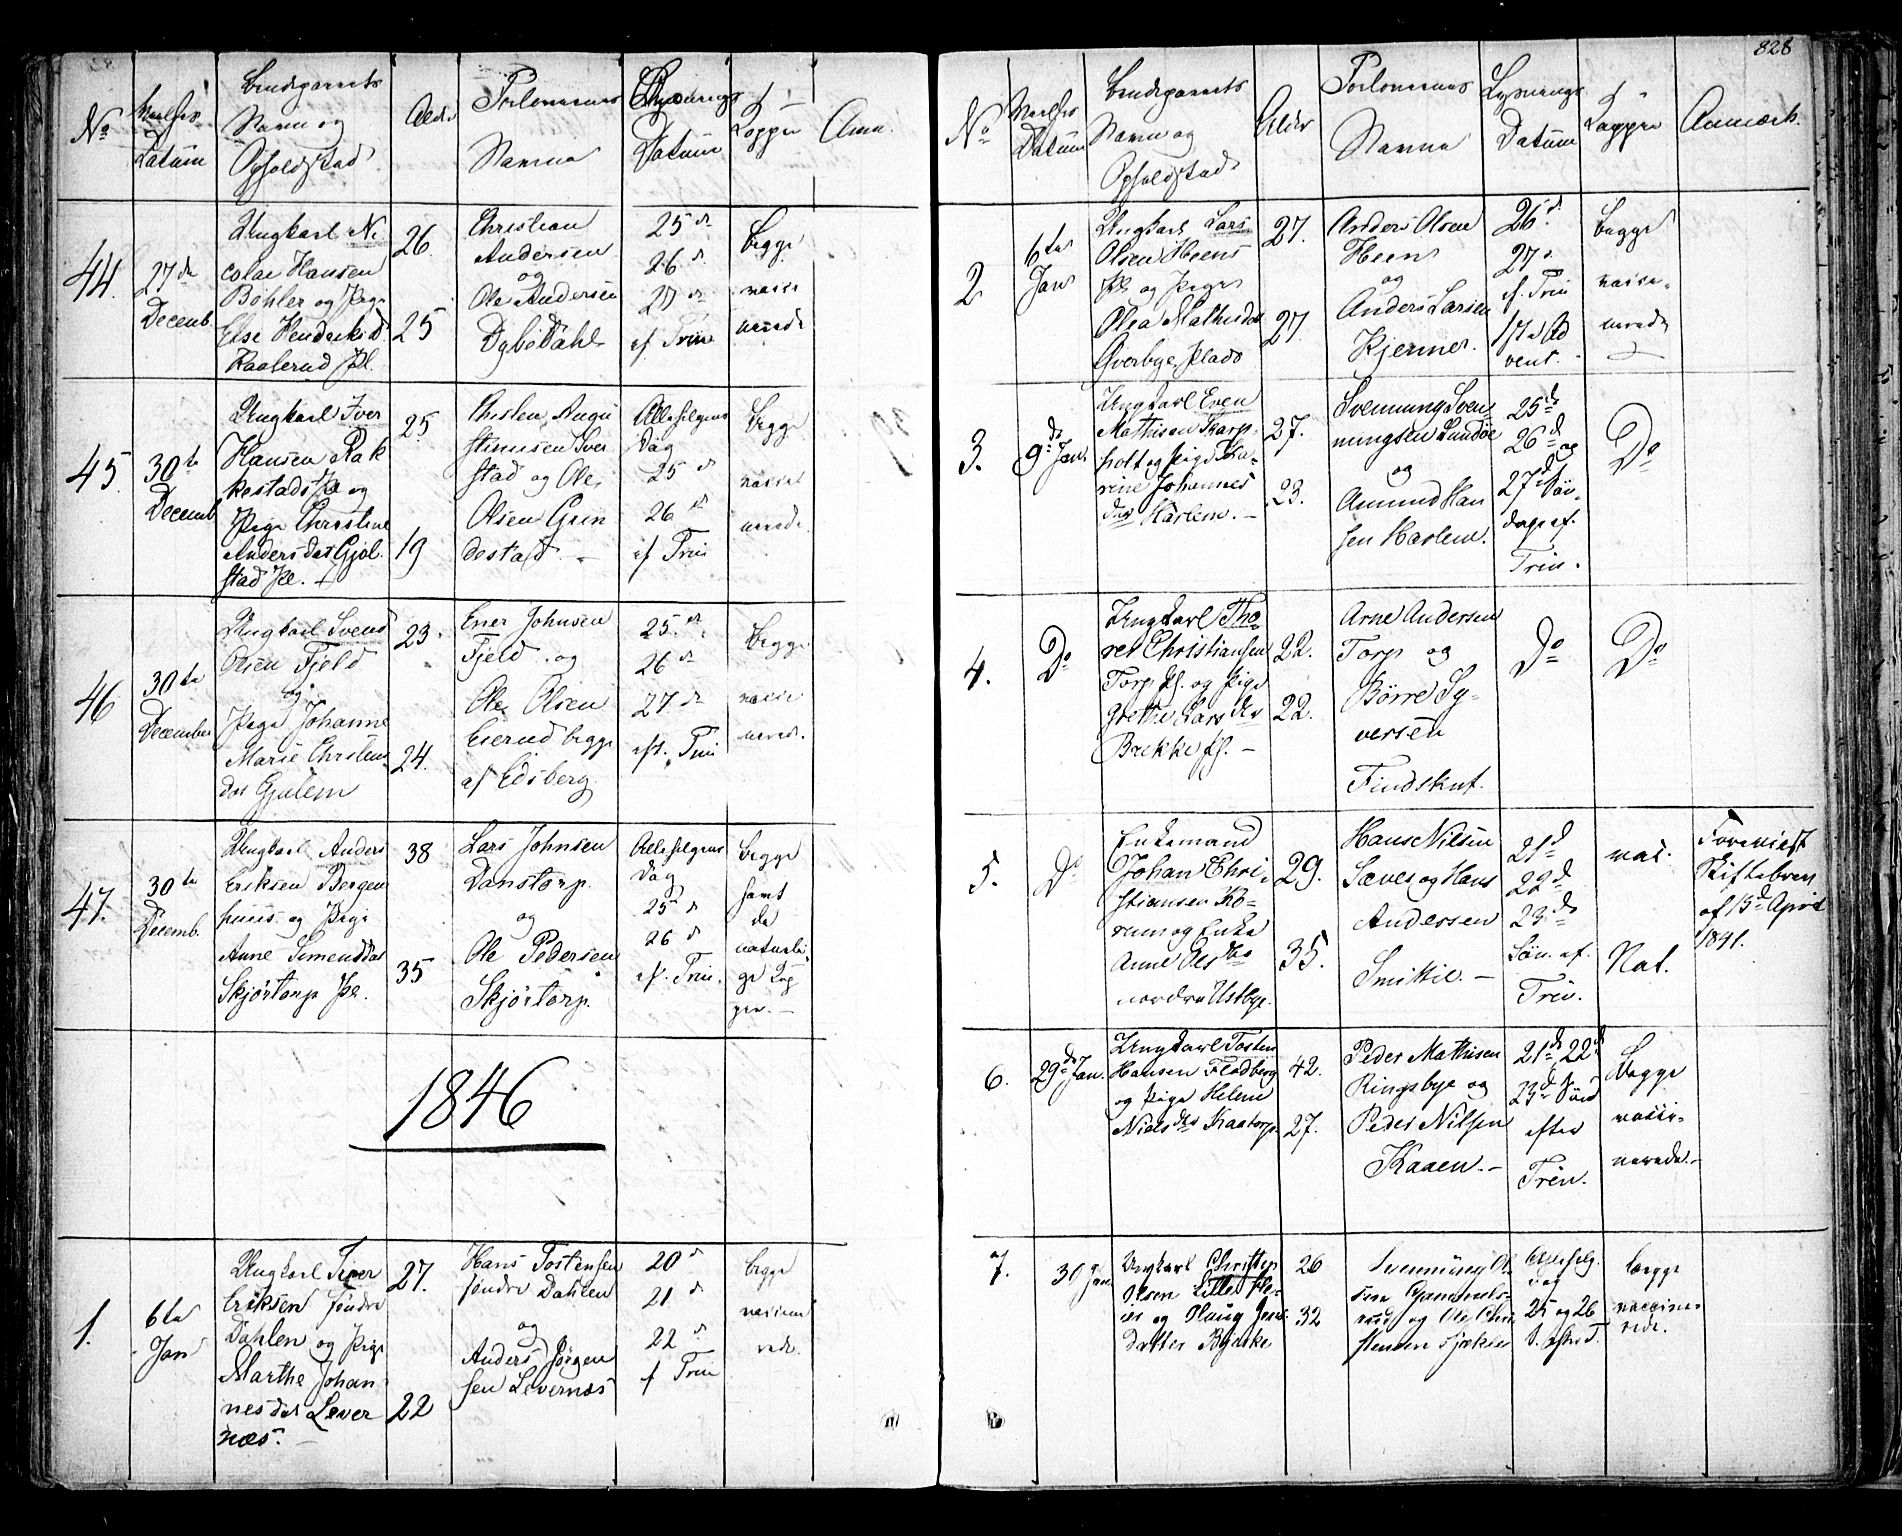 828
No
Datum
Brudeparrets
Navn og
Opholdsted
Alder
Forlovernes
Navne
Lysnings
Datum
Kopper
Anm.
44.
27de
Decemb.
Ungkarl Ni
colai Hansen
Bøhler og Pige
Else Hendriksd.
Kaalerud Pl.
26
25
Christian
Andersen
og
Ole Andersen
Dybedahl
25 de
26 d
27 de
ef Trin
begge
vacci
nerede
45
30te
Decemb
Ungkarl Iver
Hansen Rak
kestad Pl og
Pige Christine
Andersdat Gjøl
stad Pl.
25
19
Christen Augu
stinusen Sver
stad og Ole
Olsen Grin
destad
Allehelgens
Dag
25 d
26 d
ef Trin
begge
vacci
nerede
46
30te
December
Ungkarl Svend
Olsen Fjeld
og
Pige Johanne
Marie Christens
dat Gjulem
23
24.
Ener Johnsen
Fjeld og
Ole Olsen
Eierud begge
af Edsberg
25. de
26 de
27 de
eft. Trin
begge
vacci
nerede.
47.
30te
Decemb.
Ungkarl Anders
Eriksen Bergen
huus og Pige
Anne Simensdat
Skjørtorp Pl.
38
35
Lars Johnsen
Danstorp
og
Ole Pedersen
Skjørtorp.
Allehelgens
Dag
25 d
26 d
ef. Trin.
begge
havt
de
naturli
ge Kop
per.
1846
1.
6te
Jan
Ungkarl Iver
Eriksen søndre
Dahlen og Pige
Marthe Johan
nesdat Lever
næs.
27.
22
Hans Tostensen
søndre Dahlen
og
Anders Jørgen
sen Levernæs
20 d
21 d
22 d
f Trin
begge
vaccine
rede.
No
Datum
Brudeparrets
Navn og
Opholdsted
Alder
Forlovernes
Navne
Lysnings
Datum
Kopper
Anmærk.
2
6te
Jan
Ungkarl Lars
Olsen Heens
Pl og Pige
Olea Mathisdat
Øverbye Plads
27.
27.
Anders Olsen
Heen
og
Anders Larsen
Kjermer.
26 d.
27 d.
ef. Trin
1ste Ad
vent.
begge
vacci
nerede
3.
9de Jan
Ungkarl Even
Mathisen Skarp
holt og Pige Ka
rine Johannes
dat Harlem.
27.
23.
Svennung Sven
nungsen Lundøe
og
Amund Han
sen Harlem.
25de
26d og
27de Søn
dage ef.
Trin.
Do
4.
Do
Ungkarl Tho
rer Christiansen
Torp Pl. og Pige
Grethe Larsdat
Brekke Pl.
22.
22.
Arne Andersen
Torp og
Børre Sy
versen
Findskut.
Do
Do
5.
Do
Enkemand
Johan Chri
stiansen Ko
rum og Enke
Anne Olsdat
nordre Ustbye.
29.
35.
Hans Nilsen
Sæves og Hans
Andersen
Smittie.
21d
22d
23de
Søn. ef.
Trin.
vac.
Nat.
Foreviist
Skiftebrev
af 13d April
1841.
6.
29de Jan.
Ungkarl Tosten
Hansen Flodberg
og Pige Helene
Nielsdat Kaatorp
42.
27.
Peder Mathisen
Ringsbye og
Peder Nilsen
Kaaen.
21de 22d
23d Sønd
efter
Trin.
begge
vacci
nerede.
7.
30 Jan
Ungkarl Christop
Olsen Lille
og Olaug Jens
datter Bjerke
26
32
Svennung Ol
sen Gammels
rud og Ole Chri
stensen
Allehelg.
25 og 26
S. efter T.
begge
vaccine
rede.